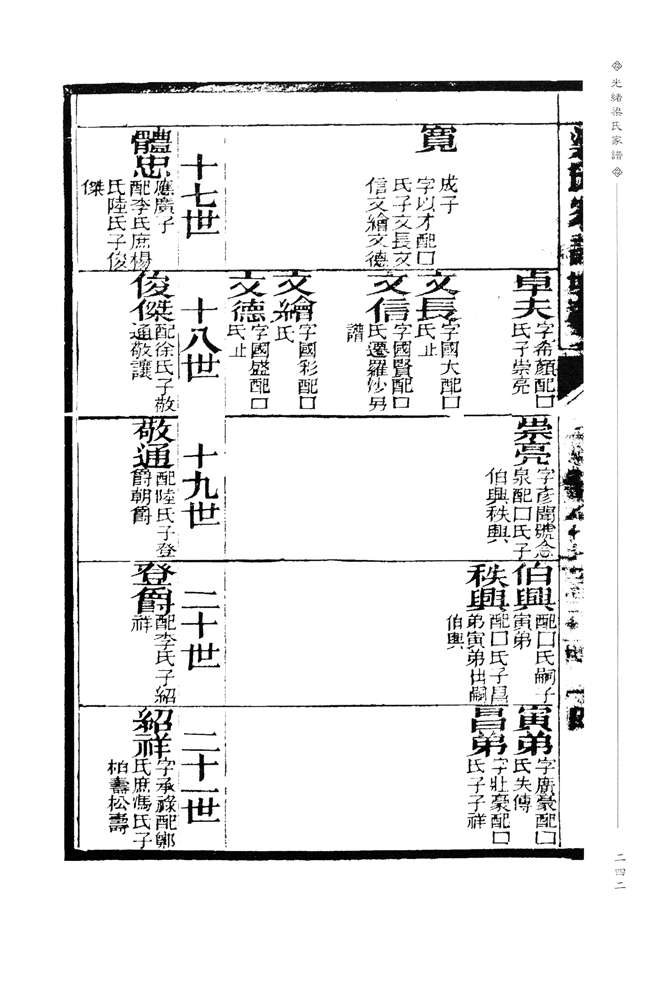 光緒梁氏家譜
二四二
寬
成子
字以才配口
氏子文長文
信文繪文德
十七世
體忠
應廣子
配李氏庶楊
氏陸氏子俊
傑
卓夫
字希顏配口
氏子崇亮
文長
字國大配口
氏止
文信
字國賢配口
氏遷羅沙另
譜
文繪
字國彩配口
氏
文德
字國盛配口
氏止
十八世
俊傑
配徐氏子敬
通敬讓
崇亮
字彥聞號念
泉配口氏子
伯興秩興
十九世
敬通
配陸氏子登
爵朝爵
伯興
配口氏嗣子
寅弟
秩興
配口氏子昌
弟寅弟出嗣
伯興
二十世
登爵
配李氏子紹
祥
寅弟
字廣豪配口
氏失傳
昌弟
字壯豪配口
氏子子祥
二十一世
紹祥
字承祿配鄭
氏庶馮氏子
柏壽松壽